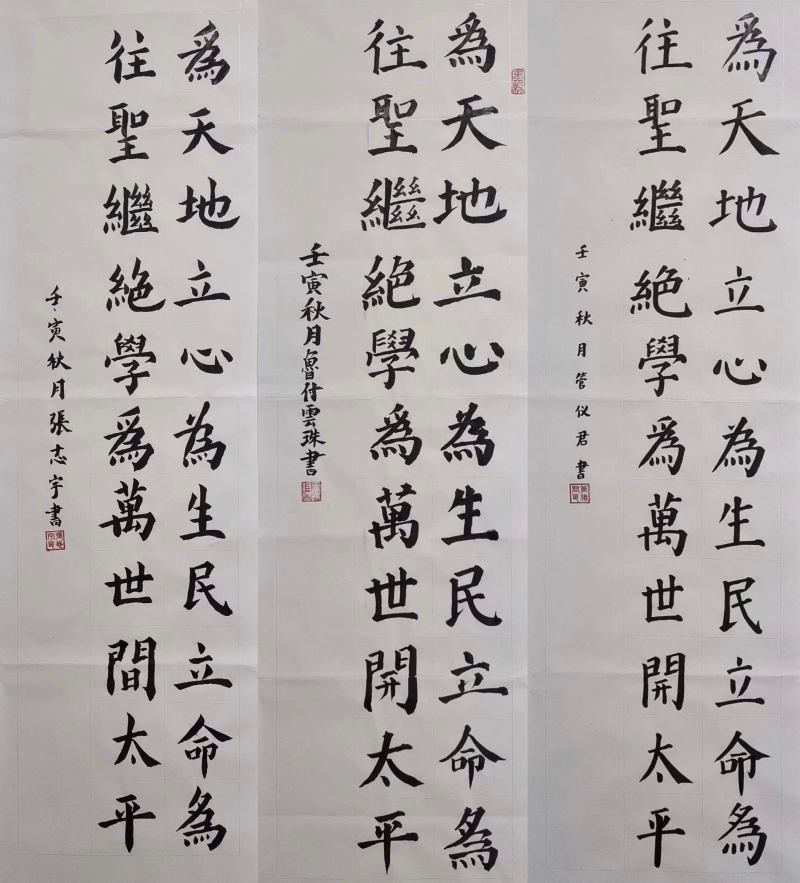 為天地立心為生民立命為
往聖繼絶學為萬世間太平
壬寅秋月張志宇書
為天地立心為生民立命為
往聖繼絶學為萬世開太平
壬寅秋月魯付雲珠書
為天地立心為生民立命為
往聖繼絶學為萬世開太平
壬寅秋月管仪君書